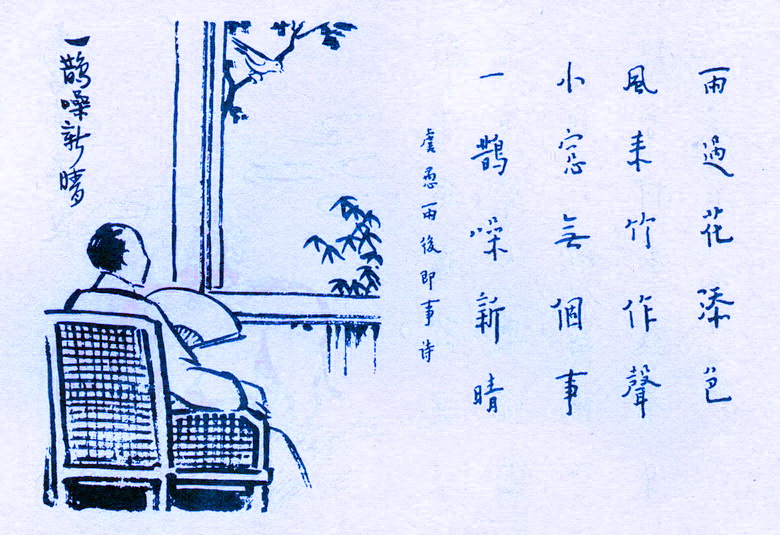 雨過花添色
風来竹作聲
小窓無個事
一鵲噪新晴
虞愚雨後即事诗
一鵲噪新晴